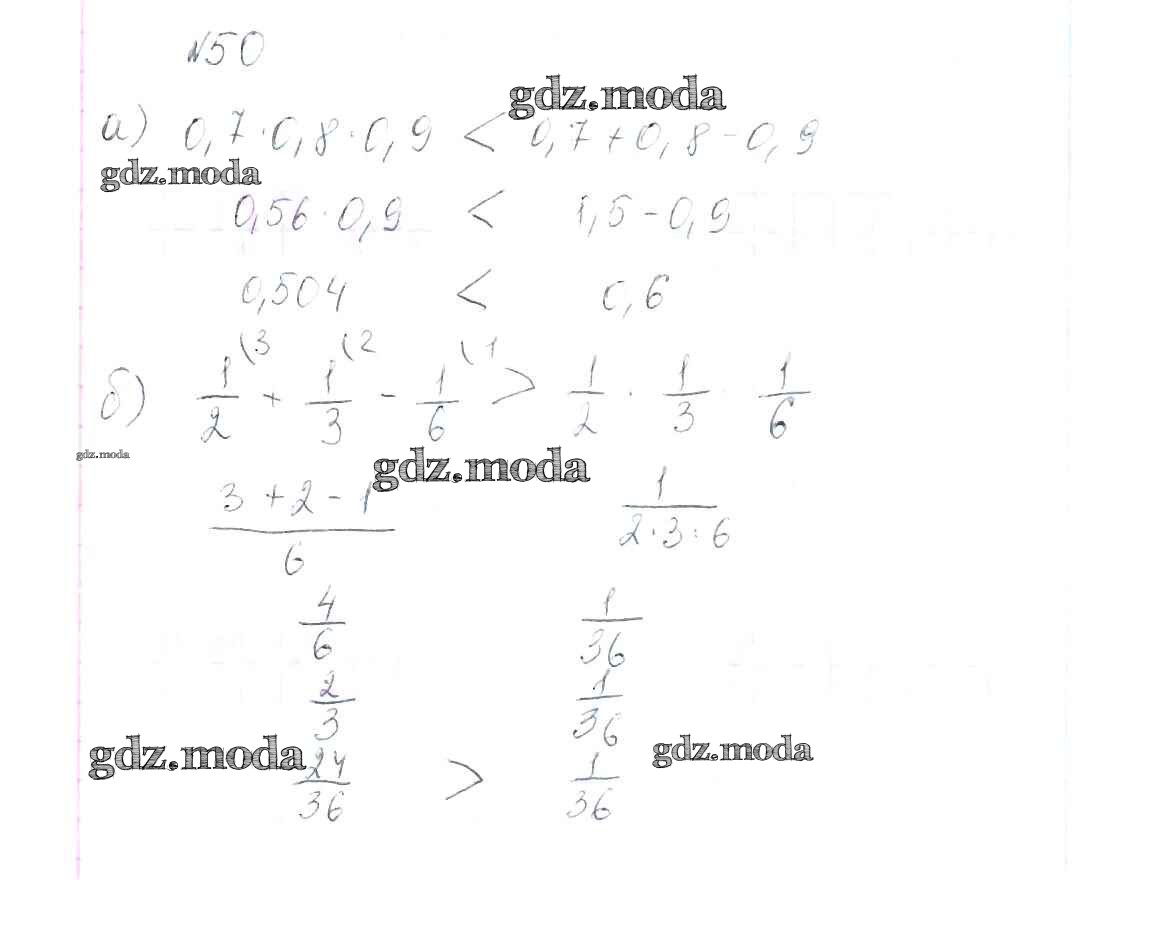 №50
gdz.moda
а) 0,7·0,8·0,9 < 0,7+0,8-0,9
gdz.moda
0,56·0,9 < 1,5-0,9
0,504 < 0,6
б) 1/2\3 + 1/3\2 - 1/6\1 > 1/2 · 1/3 1/6
gdz.moda
gdz.moda
3+2-1/6 1/2·3·6
4/6 1/36
2/3 1/36
gdz.moda
gdz.moda
24/36 > 1/36